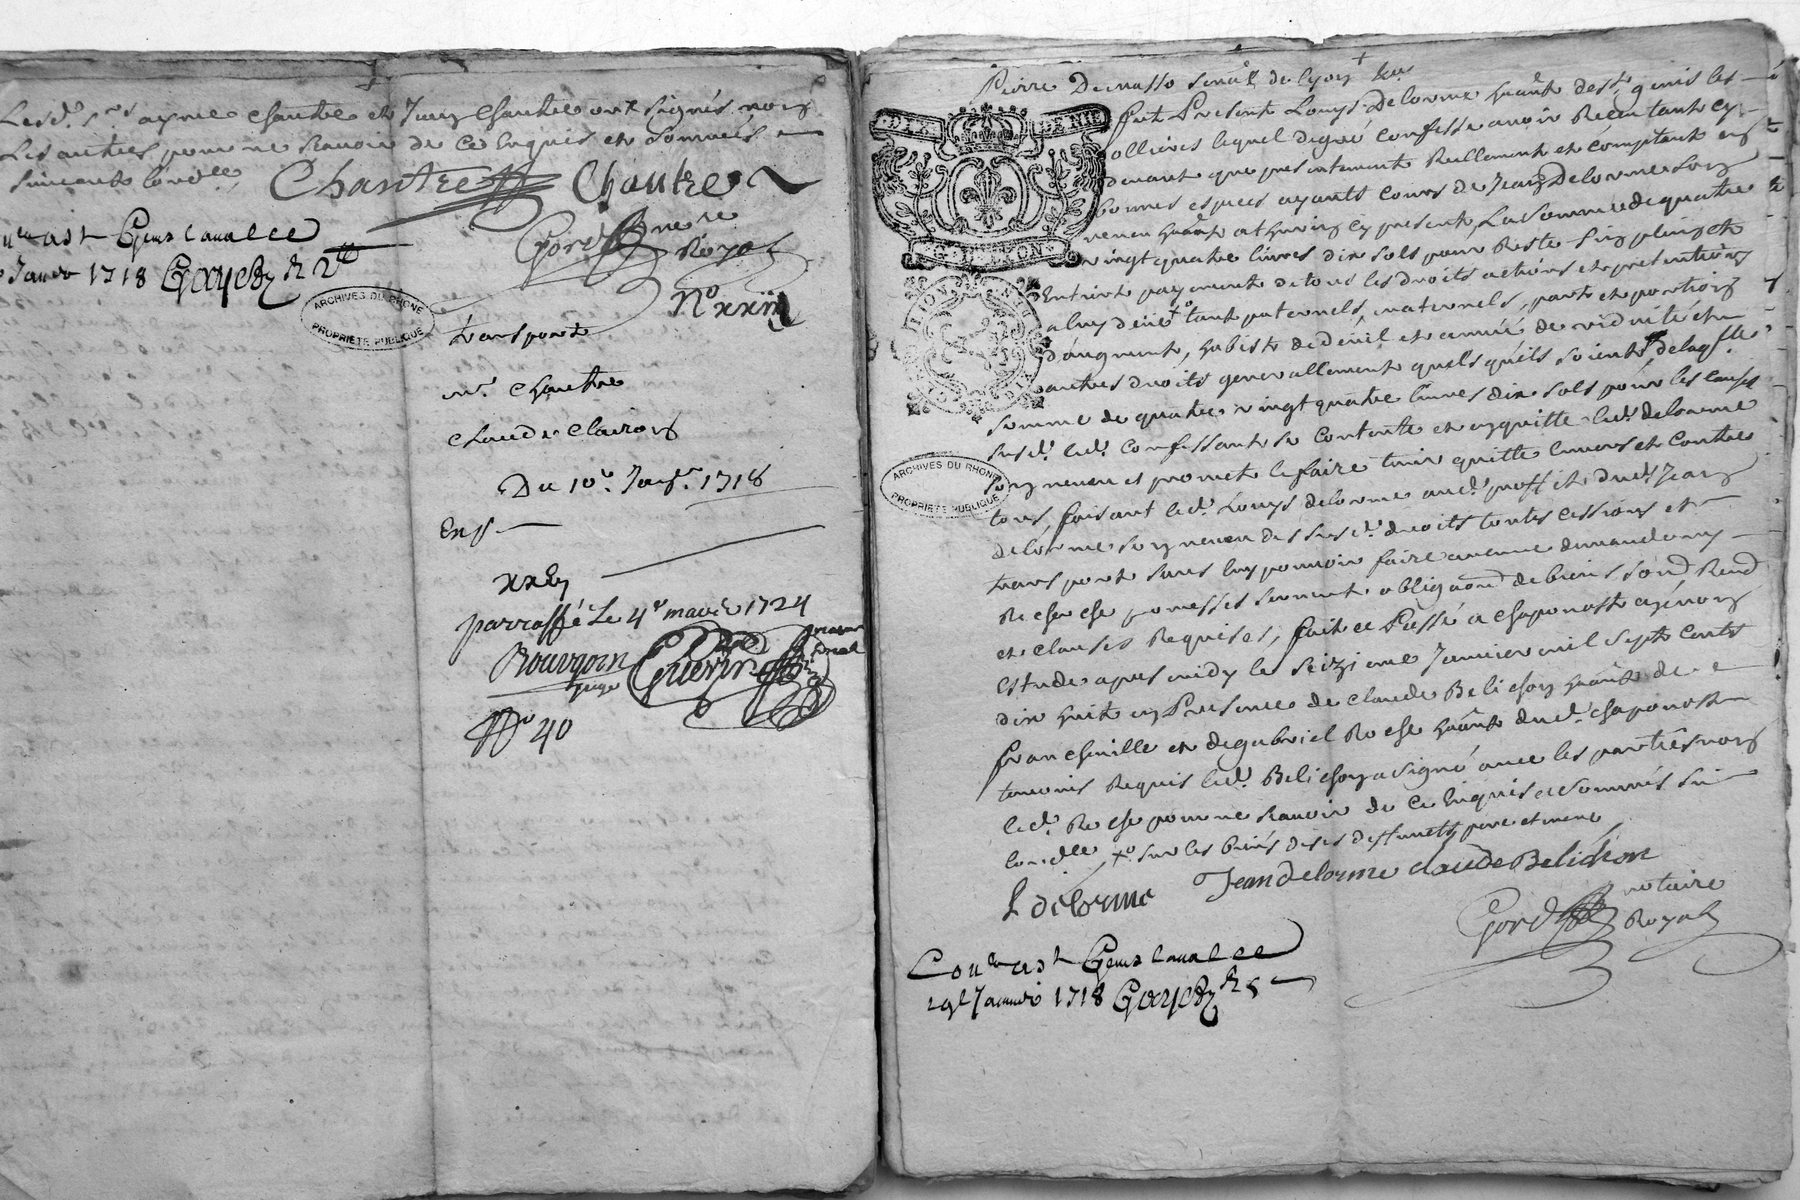 Lesd. srs ayme Chantre et Jean Chantre ont signés non
Les autres pour ne scavoir de ce Enquis et sommés
suivant lord.lle
Chantre Chantre
Gord nre Royal
Gens Laval
Janv 1718 Gayet R 2tt
ARCHIVES DU RHONE
PROPRIETE PUBLIQUE
No xxiii
transport
mr. Chantre
Claude Clairon
Du 10e. Janr. 1718
xxiij
parraffé Le 4e mars 1724
Bourgoin juge Guerin
No 40
Pierre Demasso senal. de Lyon
GENE
Fut Present Louys Delorme hant de St. genis les
ollieres lequel de gré confesse avoir Receu tant cy
devant que presentement Reellement et comptant en
bonnes especes ayants cours de Jean Delorme son
neveu hant a thurin cy present, La somme de quatre
vingt quatre livres dix sols pour Reste sin plein et
Entier payement de tous les droits actions et pretentions
a luy deue to. tant paternels, maternels, part et portion
d'augment, habist de deuil et année de viduité et
autres droits generallement quels qu'ils soient, de laqlle
somme de quatre vingt quatre livres dix sols pour les causes
susd. led. confessant se contente et en quitte led. delorme
son neveu et promet le faire tenir quitte envers et contre
tous, faisant led. Louys delorme aud. proffit dud. Jean
delorme son neveu des susd. droits toutes cessions et
transport sans luy pouvoir faire aucune demande ny
Recherche promesses serment obligaon. de biens soud Rend
et clauses Requises, fait et Passé a chaponost a mon
estude apres midy le seizieme Janvier mil sept cents
dix huit en Presence de claude Belichon hant de
francheville et de gabriel Roche hant dud. chaponost
temoins Requis led. Belichon a signé avec les parties non
led. Roche pour ne scavoir de ce Enquis et sommés sui
lord.lle to. sur les biens de ses deffuncts pere et mere
L delorme Jean delorme claude Belichon
Gord notaire Royal
ARCHIVES DU RHONE
PROPRIETE PUBLIQUE
Gens Laval
29e Janvr 1718 Gayet R